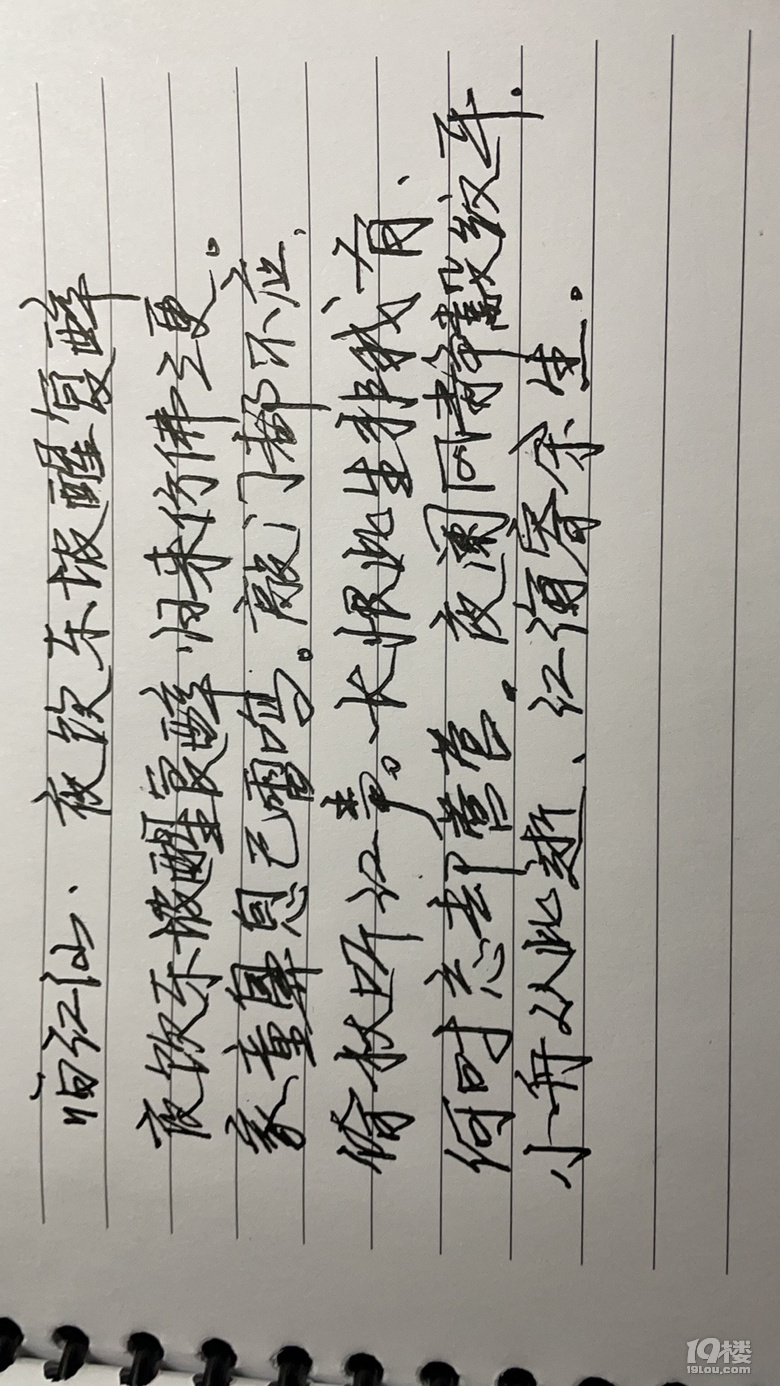 临江仙·夜饮东坡醒复醉
夜饮东坡醒复醉归来仿佛三更。
家童鼻息已雷鸣。敲门都不应、
倚杖听江声。长恨此生非我有、
何时忘却营营。夜阑风静縠纹平.
小舟从此逝、江海寄余生。
19楼
19lou.com